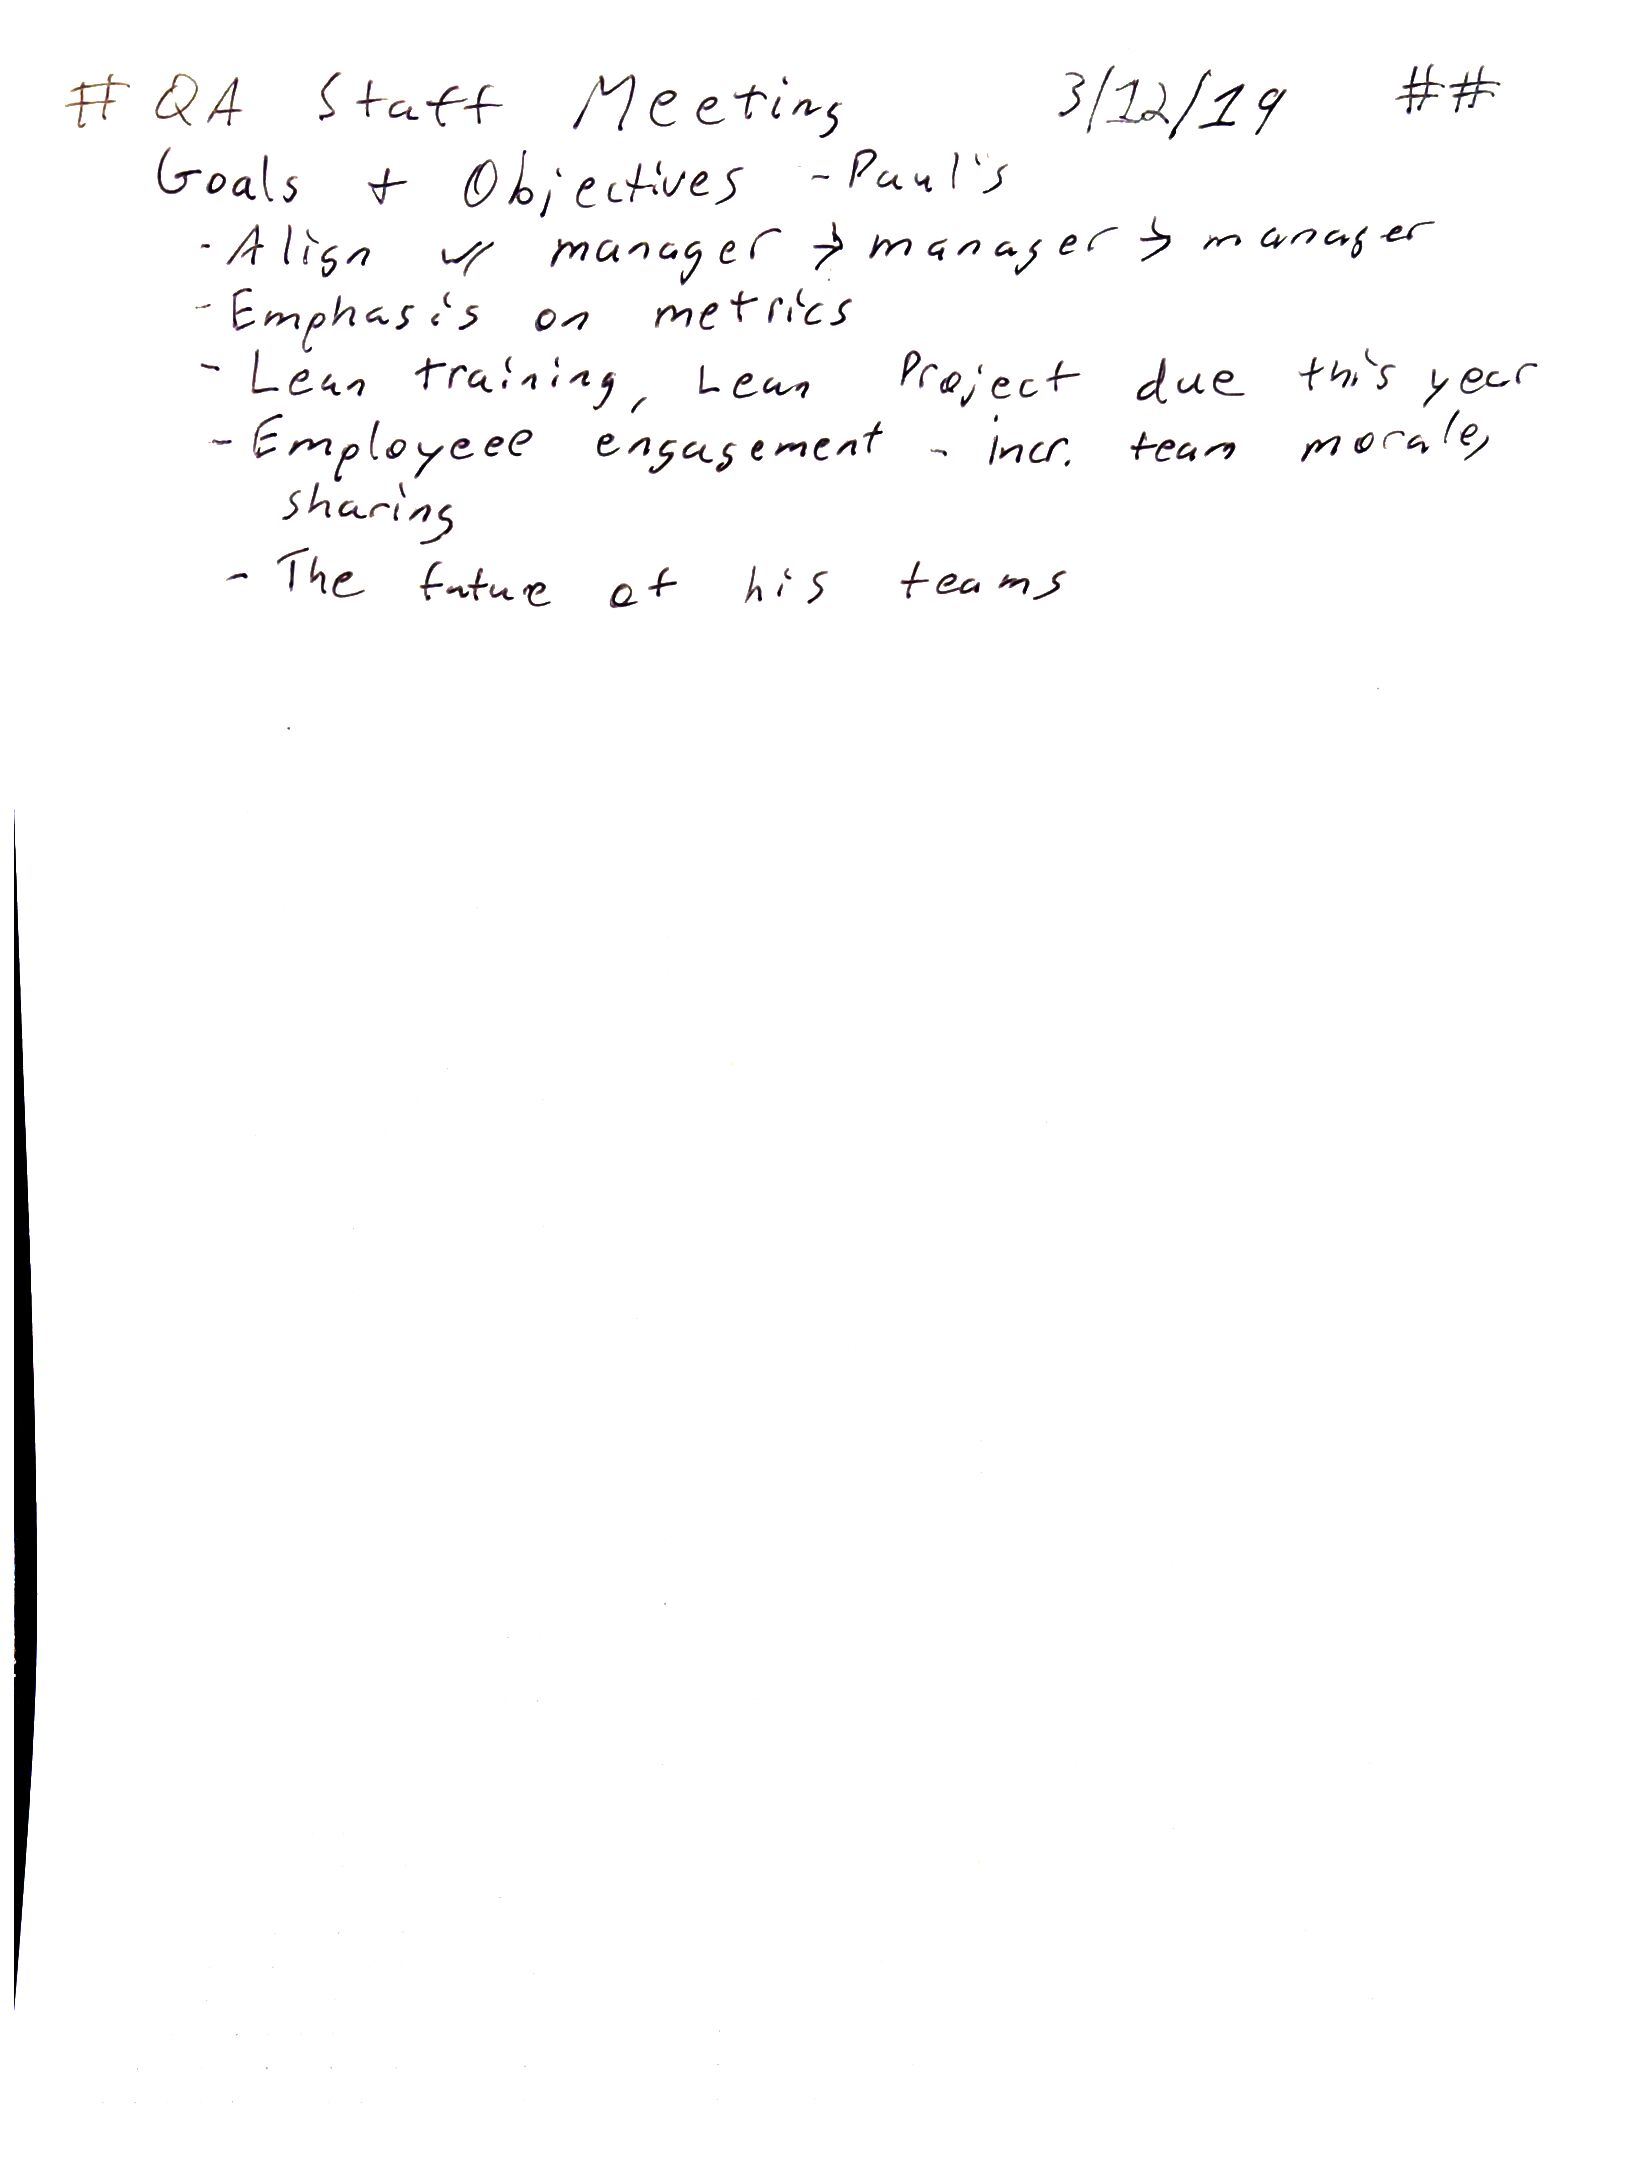 # QA Staff Meeting 3/12/19 ##
Goals + Objectives - Paul's
- Align w/ manager → manager → manager
- Emphasis on metrics
- Lean training, Lean Project due this year
- Employeee engagement - incr. team morale,
sharing
- The future of his teams